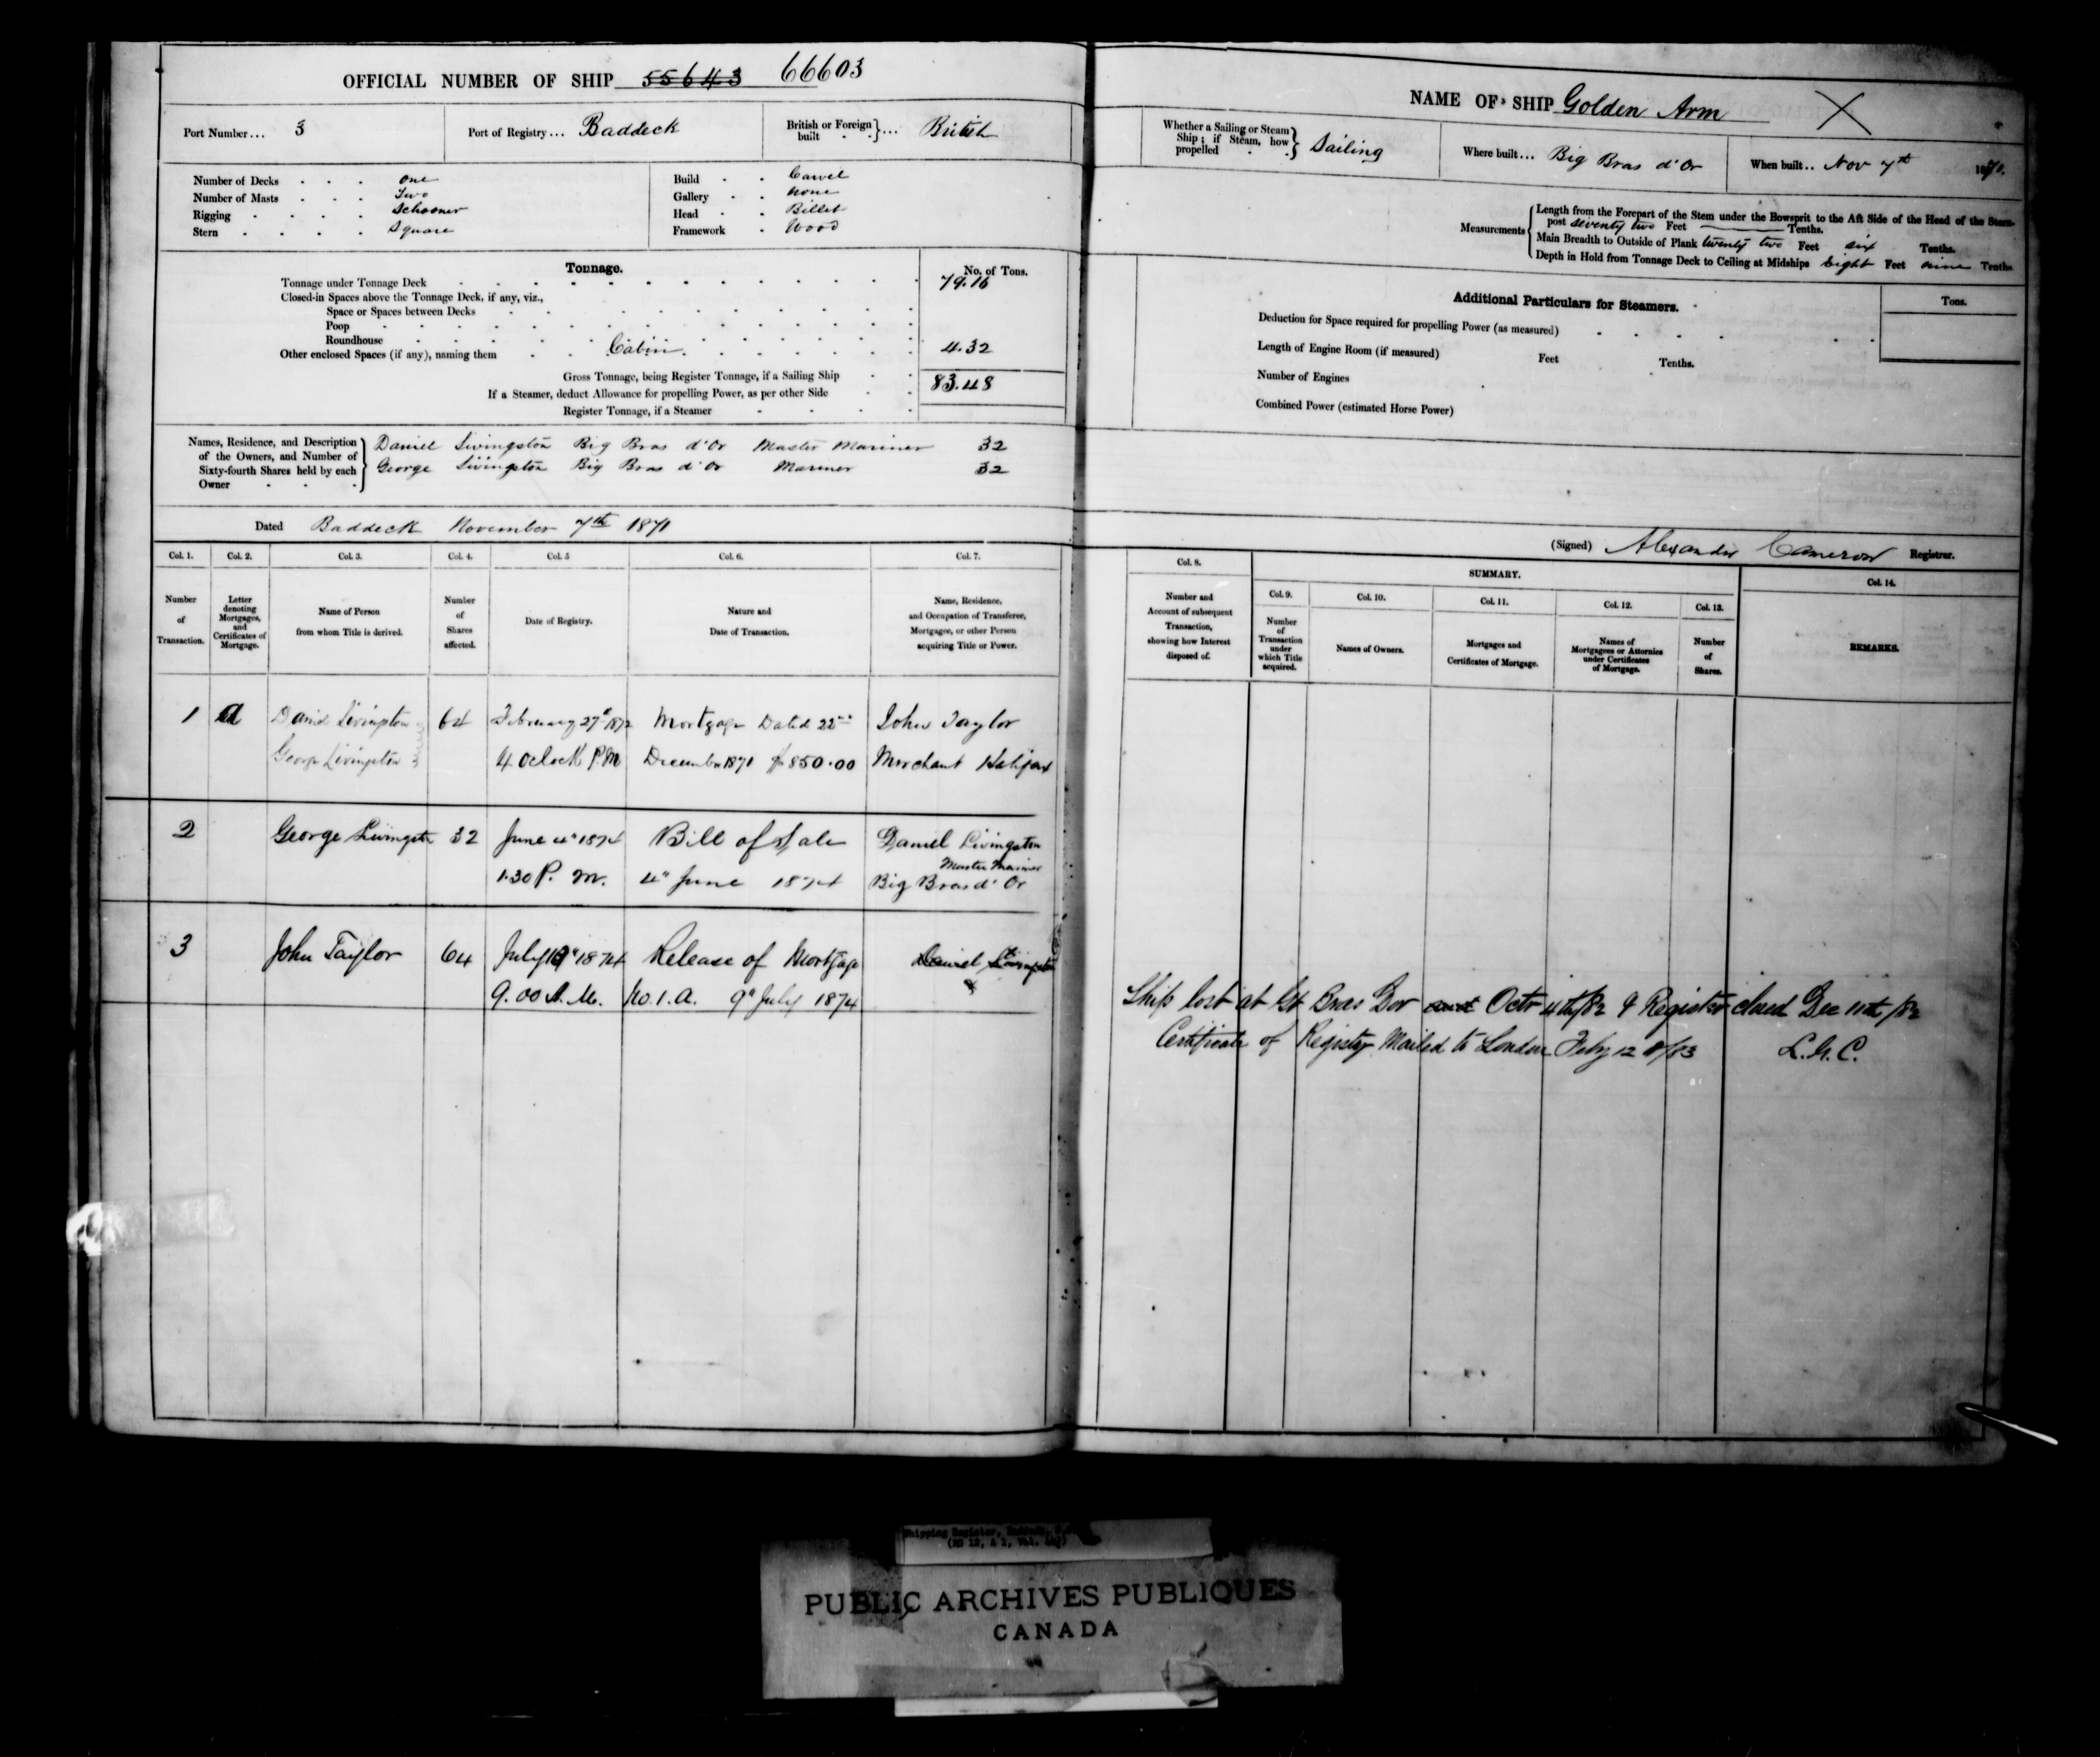 OFFICIAL NUMBER OF SHIP 55643 66603
Port Number... 3 Port of Registry... Baddeck British or Foreign built } ... British
Number of Decks one
Number of Masts Two
Rigging Schooner
Stern Square
Build Carvel
Gallery none
Head Billet
Framework Wood
Tonnage. No. of Tons.
Tonnage under Tonnage Deck 79.16
Closed-in Spaces above the Tonnage Deck, if any, viz.,
Space or Spaces between Decks
Poop
Roundhouse
Other enclosed Spaces (if any), naming them Cabin. 4.32
Gross Tonnage, being Register Tonnage, if a Sailing Ship 83.48
If a Steamer, deduct Allowance for propelling Power, as per other Side
Register Tonnage, if a Steamer
Names, Residence, and Description of the Owners, and Number of Sixty-fourth Shares held by each Owner
Daniel Livingston Big Bras d'Or Master Mariner 32
George Livingston Big Bras d'Or Mariner 32
Dated Baddeck November 7th 1871
Col. 1. Col. 2. Col. 3. Col. 4. Col. 5 Col. 6. Col. 7.
Number of Transaction.
Letter denoting Mortgages, and Certificates of Mortgage.
Name of Person from whom Title is derived.
Number of Shares affected.
Date of Registry.
Nature and Date of Transaction.
Name, Residence, and Occupation of Transferee, Mortgagee, or other Person acquiring Title or Power.
1 a Daniel Livingston 64 February 27th 1872 Mortgage Dated 22nd John Taylor
George Livingston 4 oclock P.M December 1871 $850.00 Merchant Halifax
2 George Livingston 32 June 4" 1874 Bill of Sale Daniel Livingston
Master Mariner
1.30 P. M. 4" June 1874 Big Bras d'Or
3 John Taylor 64 July 1874 Release of Mortgage Daniel Livingston
9.00 A.M. No. 1. A. 9" July 1874
NAME OF SHIP Golden Arm X
Whether a Sailing or Steam Ship; if Steam, how propelled } Sailing Where built... Big Bras d'Or When built.. Nov 7th 1871.
Measurements
Length from the Forepart of the Stem under the Bowsprit to the Aft Side of the Head of the Stern-
post seventy two Feet Tenths.
Main Breadth to Outside of Plank twenty two Feet six Tenths.
Depth in Hold from Tonnage Deck to Ceiling at Midships Eight Feet nine Tenths
Additional Particulars for Steamers. Tons.
Deduction for Space required for propelling Power (as measured)
Length of Engine Room (if measured) Feet Tenths.
Number of Engines
Combined Power (estimated Horse Power)
(Signed) Alexander Cameron Registrar.
Col. 8. SUMMARY. Col. 14.
Col. 9. Col. 10. Col. 11. Col. 12. Col. 13.
Number and Account of subsequent Transaction, showing how Interest disposed of.
Number of Transaction under which Title acquired.
Names of Owners.
Mortgages and Certificates of Mortgage.
Names of Mortgagees or Attornies under Certificates of Mortgage.
Number of Shares.
REMARKS.
Ship lost at Gt Bras Dor and Octr 4th/82 & Register closed Dec 11th/82
Certificate of Registry Mailed to London Feby 12 /83
Shipping Register, Baddeck,
PUBLIC ARCHIVES PUBLIQUES
CANADA